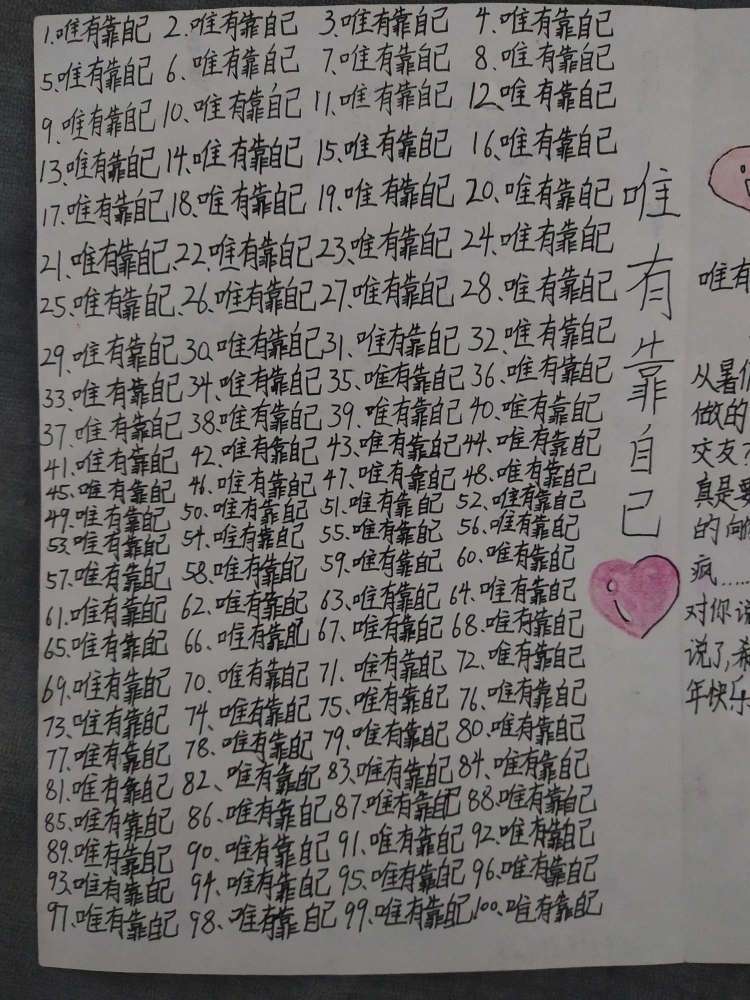 1.唯有靠自己 2.唯有靠自己 3.唯有靠自己 4.唯有靠自己
5、唯有靠自己 6、唯有靠自己 7、唯有靠自己 8、唯有靠自己
9、唯有靠自己 10、唯有靠自己 11、唯有靠自己 12、唯有靠自己
13、唯有靠自己 14、唯有靠自己 15、唯有靠自己 16、唯有靠自己
17、唯有靠自己 18、唯有靠自己 19、唯有靠自己 20、唯有靠自己
21、唯有靠自己、22、唯有靠自己 23、唯有靠自己 24、唯有靠自己
25、唯有靠自己、26、唯有靠自己 27、唯有靠自己 28、唯有靠自己
29、唯有靠自己 30、唯有靠自己 31、唯有靠自己 32、唯有靠自己
33、唯有靠自己 34、唯有靠自己 35、唯有靠自己 36、唯有靠自己
37、唯有靠自己 38、唯有靠自己 39、唯有靠自己 40、唯有靠自己
41、唯有靠自己 42、唯有靠自己 43、唯有靠自己 44、唯有靠自己
45、唯有靠自己 46、唯有靠自己 47、唯有靠自己 48、唯有靠自己
49、唯有靠自己 50、唯有靠自己 51、唯有靠自己 52、唯有靠自己
53、唯有靠自己 54、唯有靠自己 55、唯有靠自己 56、唯有靠自己
57、唯有靠自己 58、唯有靠自己 59、唯有靠自己 60、唯有靠自己
61、唯有靠自己 62、唯有靠自己 63、唯有靠自己 64、唯有靠自己
65、唯有靠自己 66、唯有靠自己 67、唯有靠自己 68、唯有靠自己
69、唯有靠自己 70、唯有靠自己 71、唯有靠自己 72、唯有靠自己
73、唯有靠自己 74、唯有靠自己 75、唯有靠自己 76、唯有靠自己
77、唯有靠自己 78、唯有靠自己 79、唯有靠自己 80、唯有靠自己
81、唯有靠自己 82、唯有靠自己 83、唯有靠自己 84、唯有靠自己
85、唯有靠自己 86、唯有靠自己 87、唯有靠自己 88、唯有靠自己
89、唯有靠自己 90、唯有靠自己 91、唯有靠自己 92、唯有靠自己
93、唯有靠自己 94、唯有靠自己 95、唯有靠自己 96、唯有靠自己
97、唯有靠自己 98、唯有靠自己 99、唯有靠自己 100、唯有靠自己
唯有靠自己
唯有
从暑
做的
交友
真是
的向
疯……
对你
说了,
年快乐